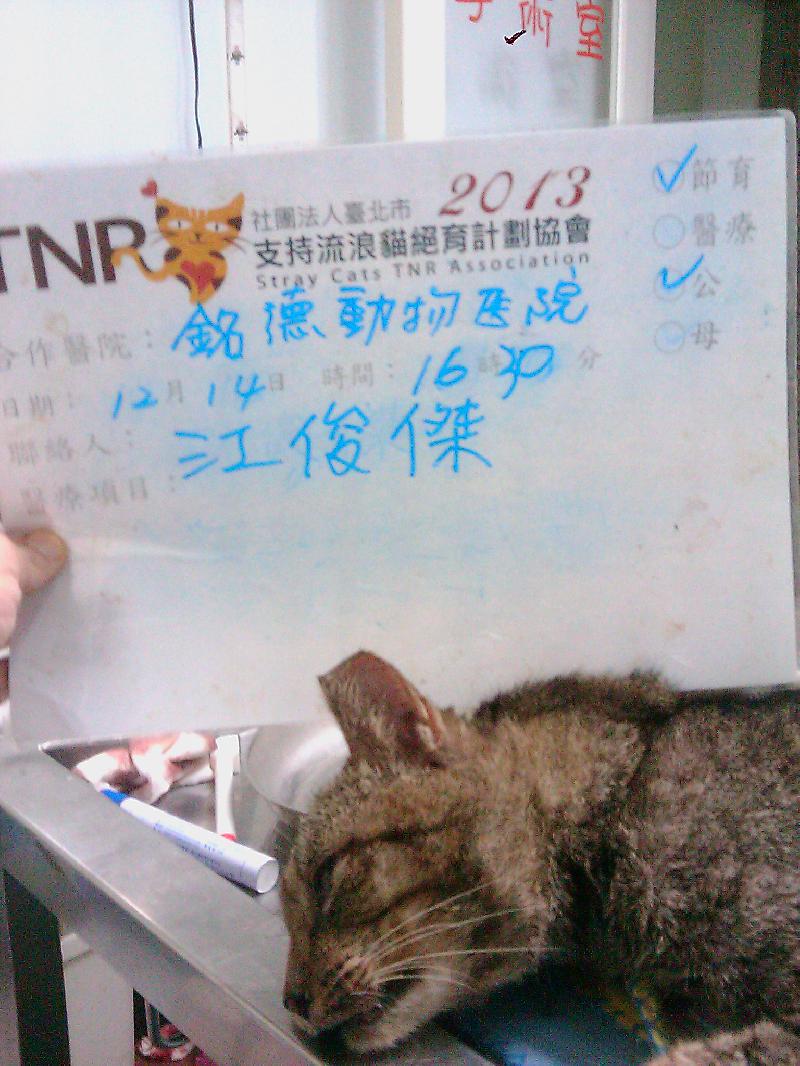 手術室
TNR
社團法人臺北市
2013
支持流浪貓絕育計劃協會
Stray Cats TNR Association
節育
醫療
公
母
合作醫院：銘德動物医院
日期：12月14日 時間：16時30分
聯絡人：江俊傑
醫療項目：